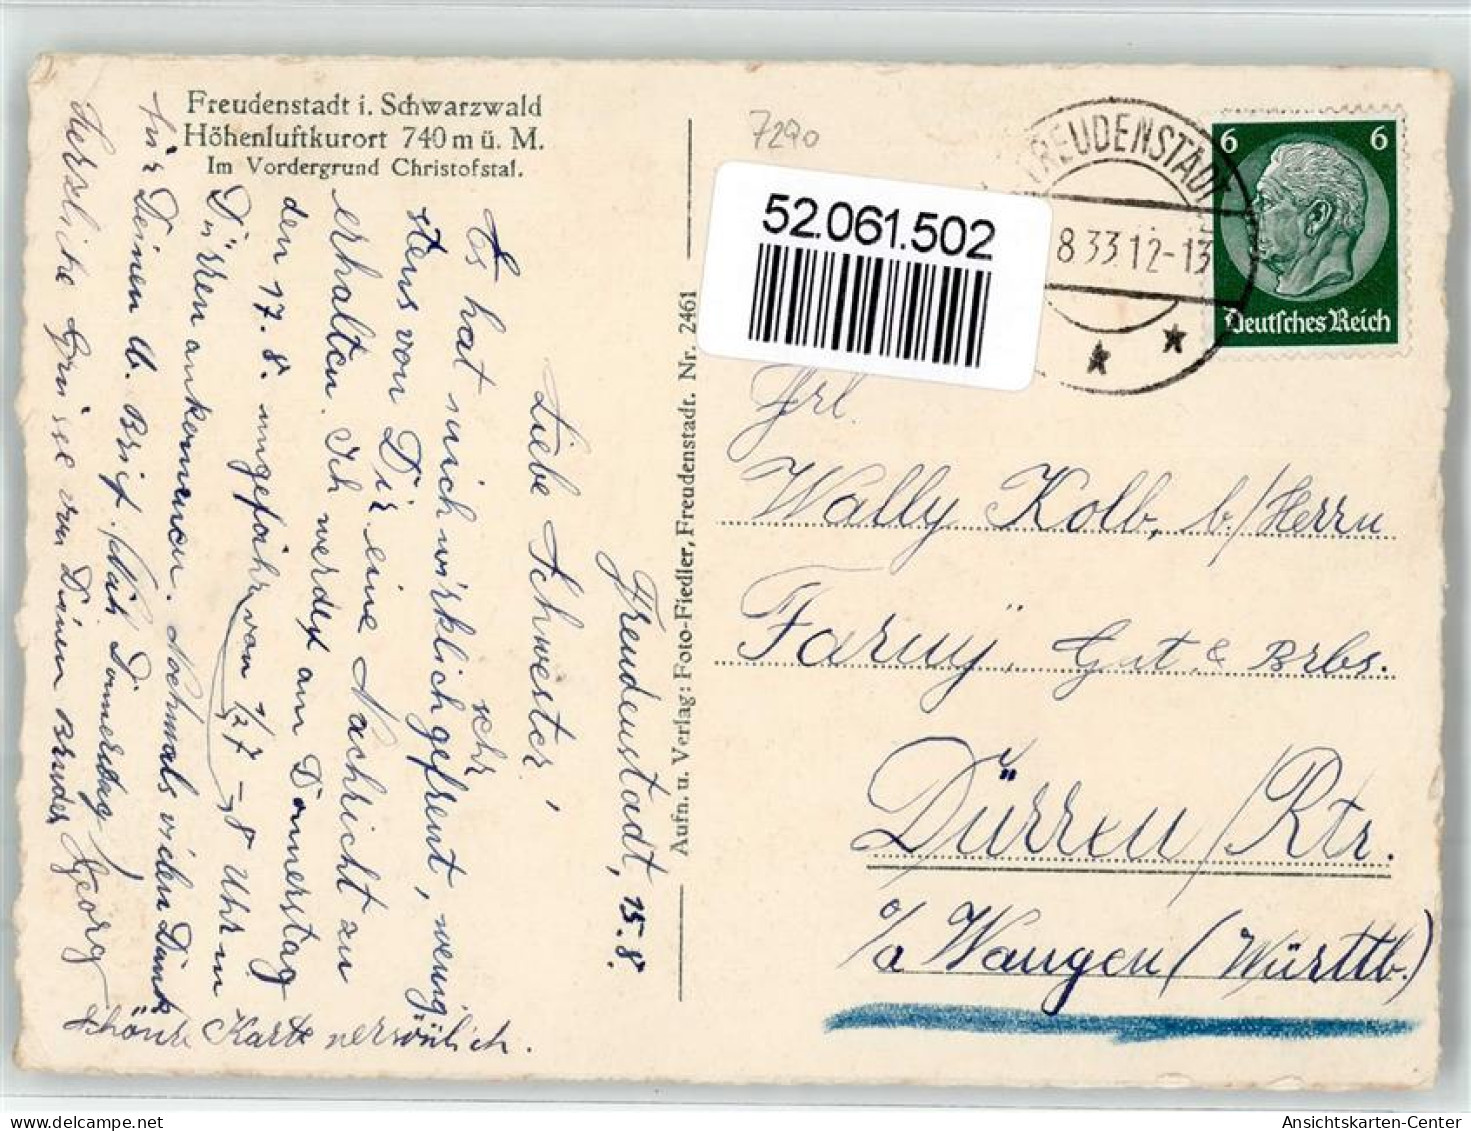 Freudenstadt i. Schwarzwald
Höhenluftkurort 740 m ü. M.
Im Vordergrund Christofstal.
7290
52.061.502
FREUDENSTADT
8 33.12-13
6 6
Deutsches Reich
Aufn. u. Verlag: Foto-Fiedler, Freudenstadt. Nr. 2461
Freudenstadt, 15.8.
Liebe Schwester!
Es hat mich wirklich sehr
gefreut, wenig
stens von Dir eine Nachricht zu
erhalten. Ich werde am Donnerstag
den 17. 8. ungefähr von 1/2 7 – 8 Uhr in
Dürren ankommen. Nochmals vielen Dank
für Deinen lb. Brief.
Herzliche Grüsse von Deinem Bruder Georg
schöne Karte persönlich.
Frl.
Wally Kolb, b/Herrn
Farny, Gut & Brbs.
Dürren/Rtr.
a/a Wangen (Württb.)
Ansichtskarten-Center